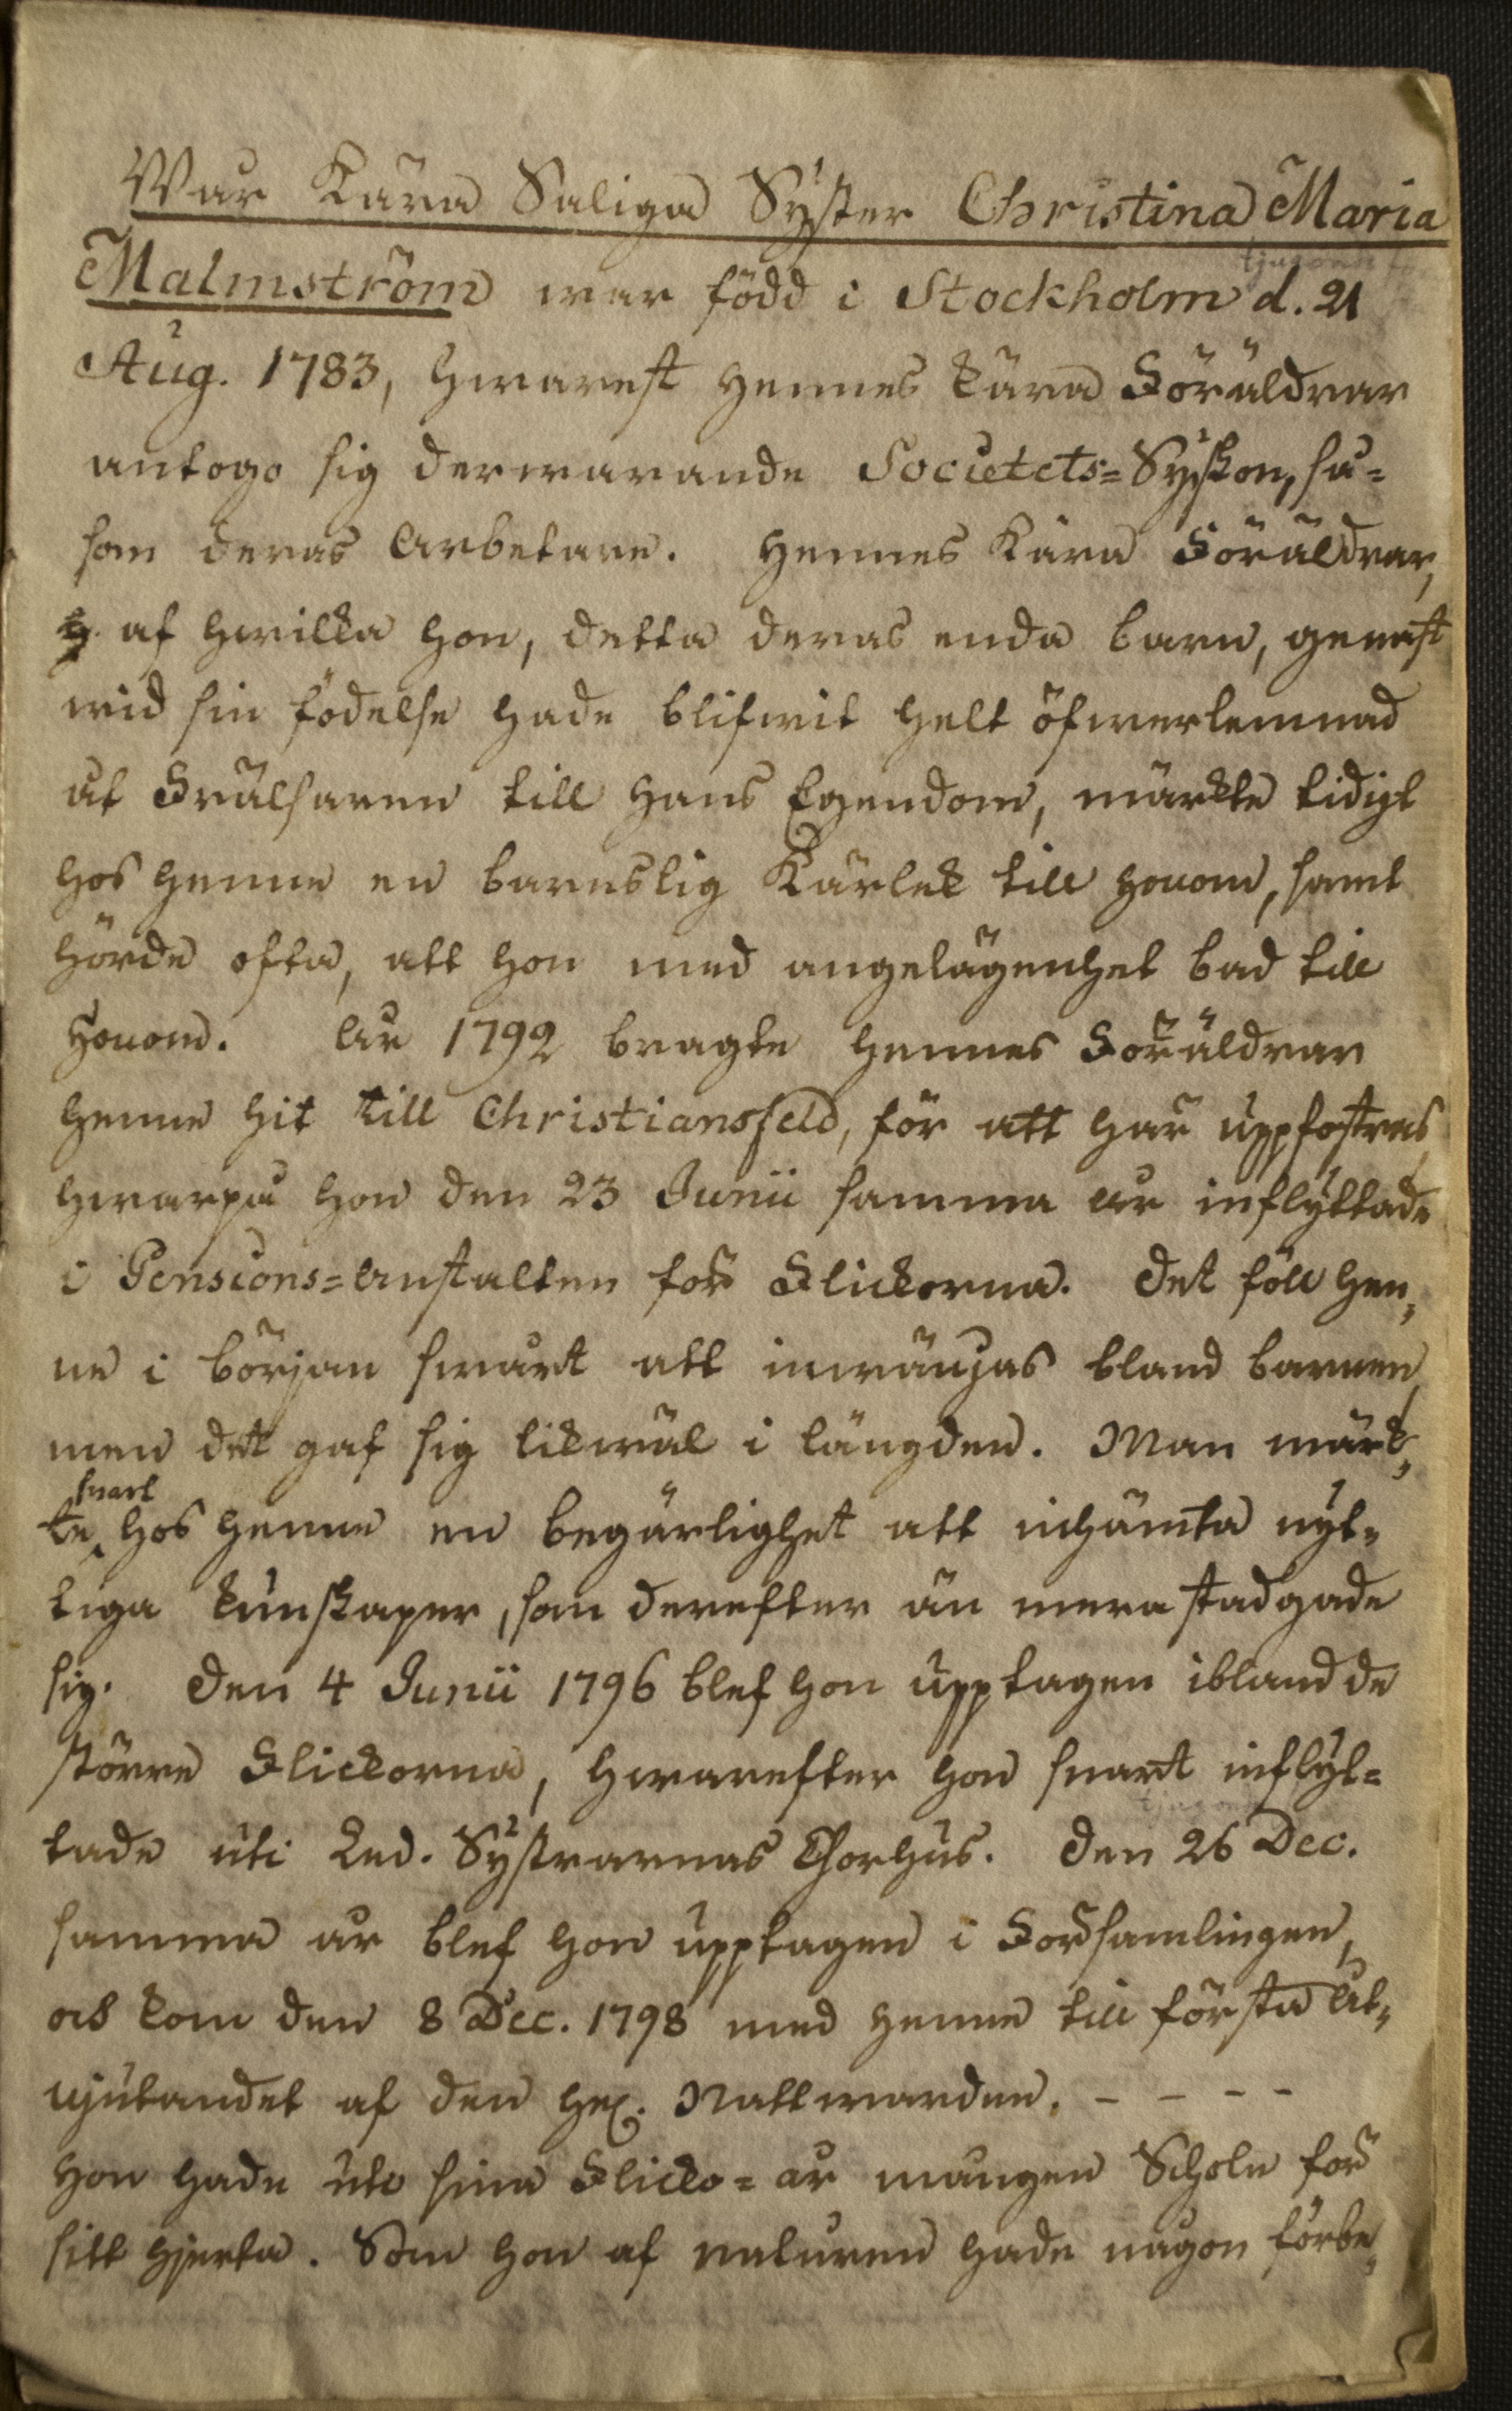 War Kära Saliga Syster Christina Maria
Malmström war född i Stockholm d. 21
Aug. 1783, hwarest hennes kära Föräldrar
antogo sig derwarande Societets=Syskon, så=
som deras Arbetare. Hennes Kära Föräldrar,
af hwilka hon, detta deras enda barn, genast
wid sin födelse hade blifwit helt öfwerlemnad
åt Frälsaren till Hans Egendom, märkte tidigt
hos henne en barnslig Kärlek till Honom, samt
hörde ofta, att hon med angelägenhet bad till
Honom. År 1792 bragte hennes Föräldrar
henne hit till Christiansfeld, för att här uppfostras,
hwarpå hon den 23 Junii samma år inflyttade
i Pensions=Anstalten för Flickorna. Det föll hen=
ne i början swårt att inwänjas bland barnen,
men det gaf sig likwäl i längden. Man märk=
snart
te hos henne en begärlighet att inhämta nyt=
tiga kunskaper, som derefter än mera stadgade
sig. Den 4 Junii 1796 blef hon upptagen ibland de
större Flickorna, hwarefter hon snart inflyt=
tade uti Led. Systrarnas Chorhus. Den 26 Dec.
samma år blef hon upptagen i Församlingen,
och kom den 8 Dec. 1798 med henne till första Åt=
njutandet af den Hel. Nattwarden. - - - -
Hon hade uti sina Flicko=år mången Schole för
sitt hjerta. Som hon af naturen hade någon förbe=